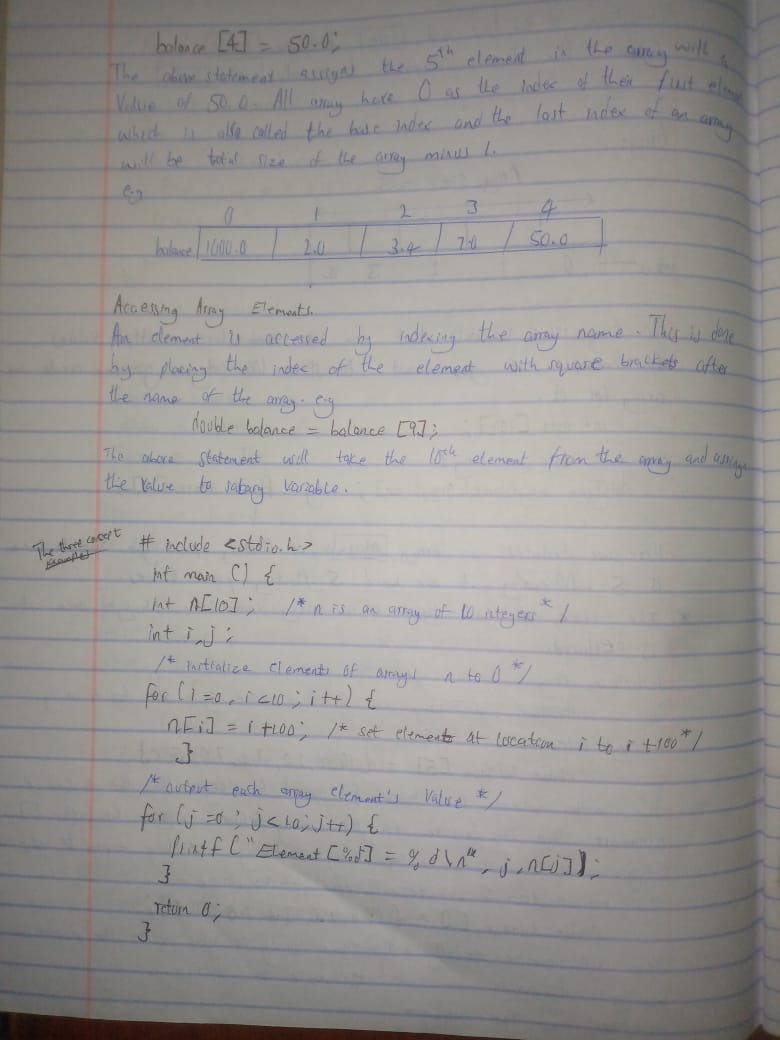 balance [4] = 50.0;
The above statement assigns the 5th element in the array will a
Value of 50.0. All array have 0 as the index of their first eleme
which is also called the base index and the last index of an array
will be total size of the array minus 1.
e.g
0 1 2 3 4
balance 1000.0 2.0 3.4 7.0 50.0
Accessing Array Elements.
An element is accessed by indexing the array name. This is done
by placing the index of the element with square brackets after
the name of the array. e.g
double balance = balance [9];
The above statement will take the 10th element from the array and assigns
the value to salary variable.
The three concept
examples
# include <stdio.h>
int main () {
int n[10]; /* n is an array of 10 integers */
int i,j;
/* initialize elements of array n to 0 */
for (i=0, i<10; i++) {
n[i] = i+100; /* set elements at location i to i+100 */
}
/* output each array element's value */
for (j=0; j<10; j++) {
printf ("Element [%d] = %d\n", j, n[j]);
}
return 0;
}